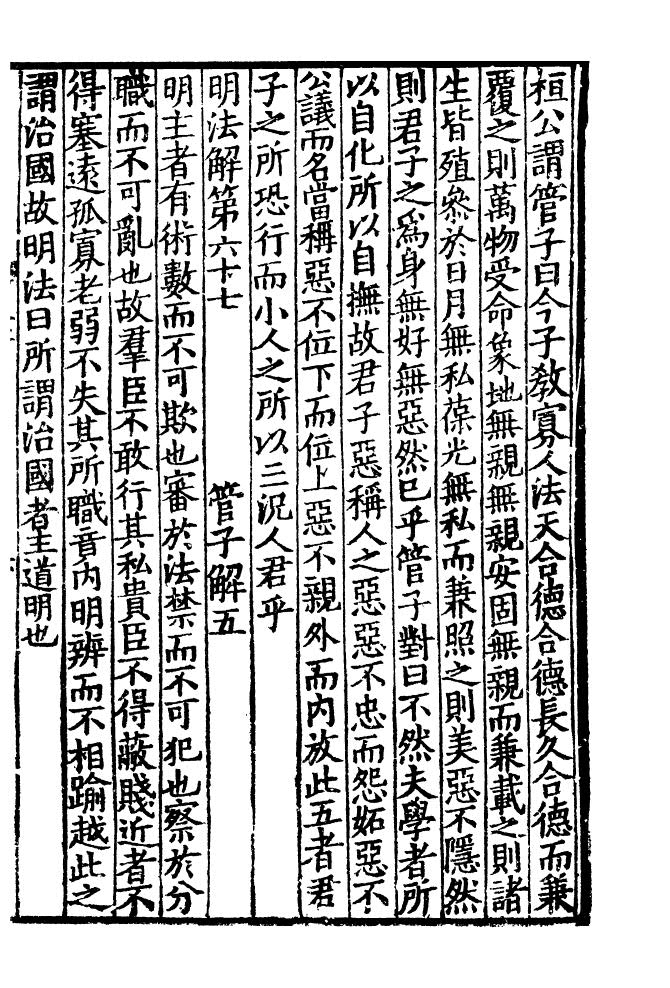 桓公謂管子曰今子敎寡人法天合德合德長久合德而兼
覆之則萬物受命象地無親無親安固無親而兼載之則諸
生皆殖參於日月無私葆光無私而兼照之則美惡不隱然
則君子之爲身無好無惡然已乎管子對曰不然夫學者所
以自化所以自撫故君子惡稱人之惡惡不忠而怨妬惡不
公議而名當稱惡不位下而位上惡不親外而內放此五者君
子之所恐行而小人之所以亡況人君乎
明法解第六十七 管子解五
明主者有術數而不可欺也審於法禁而不可犯也察於分
職而不可亂也故羣臣不敢行其私貴臣不得蔽賤近者不
得塞遠孤寡老弱不失其所職竟內明辨而不相踰越此之
謂治國故明法曰所謂治國者主道明也